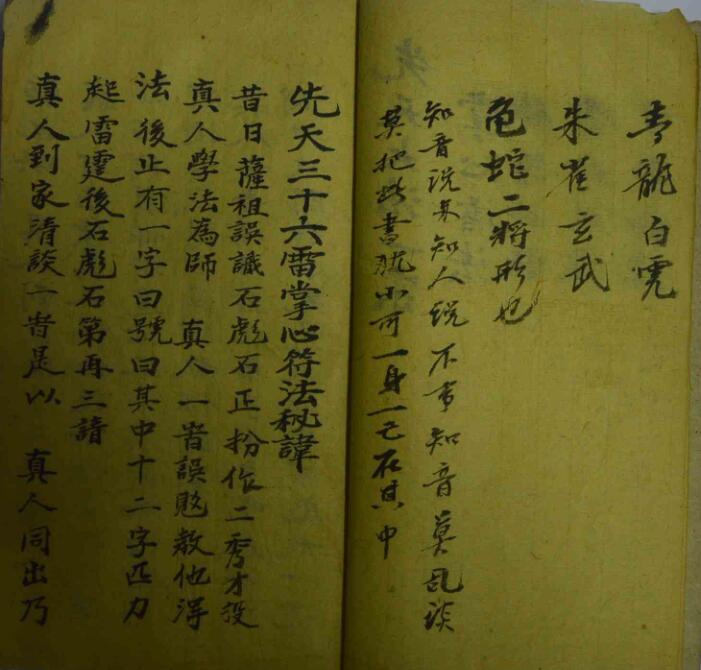 青龍白虎
朱雀玄武
龟蛇二將形也
知音説来知人説 不重知音莫乱談
莫把此書脱小可一身一己在其中
先天三十六雷掌心符法秘諱
昔日薩祖誤識石彪石正扮作二秀才投
真人學法為師 真人一時誤敗教他得
法後止有一字曰號曰其中十二字匹力
起雷霆後石彪石第再三請
真人到家清談一時是以 真人同出乃